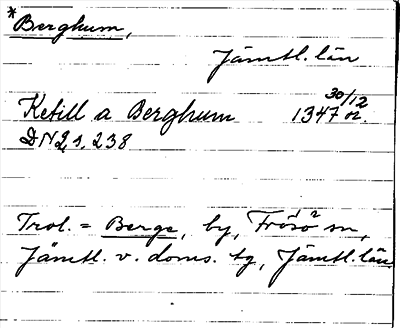 *Berghum,
Jämtl. län
Ketill a Berghum 1347 30/12 or.
DN 2 s. 238
Trol. = Berge, by, Frösö sn,
Jämtl. v. doms. tg, Jämtl. län